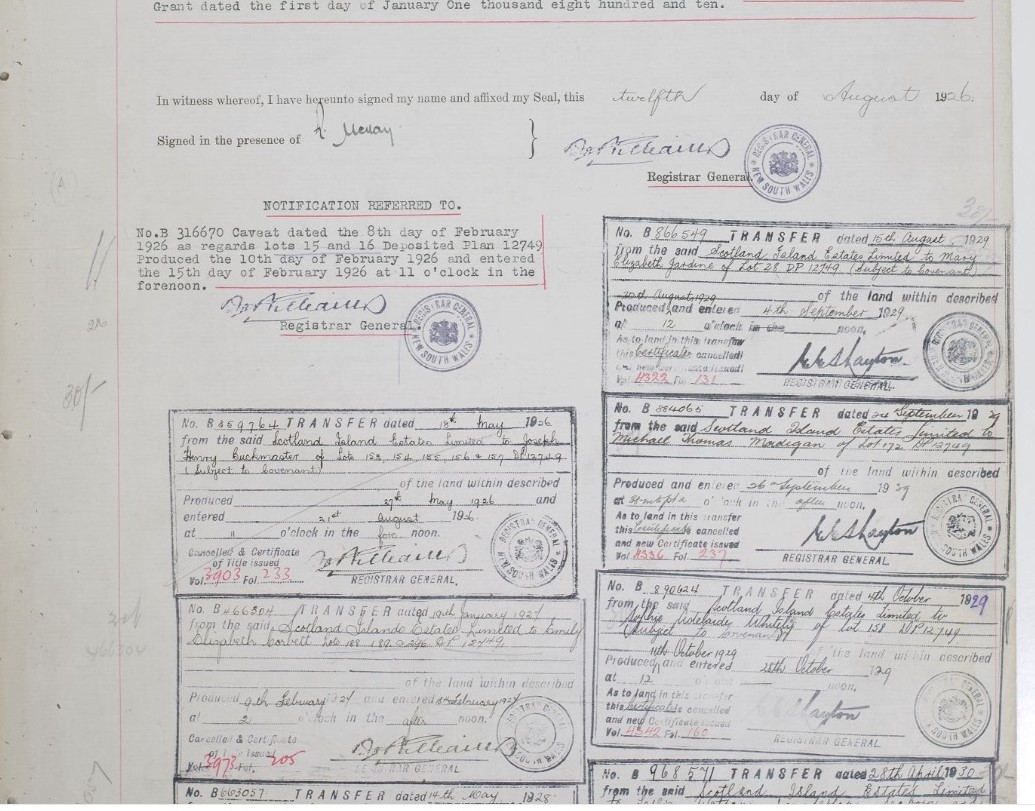 Grant dated the first day of January One thousand eight hundred and ten.
In witness whereof, I have hereunto signed my name and affixed my Seal, this twelfth day of August 1926.
Signed in the presence of
Registrar General.
REGISTRAR GENERAL NEW SOUTH WALES
NOTIFICATION REFERRED TO.
No.B 316670 Caveat dated the 8th day of February
1926 as regards lots 15 and 16 Deposited Plan 12749
Produced the 10th day of February 1926 and entered
the 15th day of February 1926 at 11 o'clock in the
forenoon.
Registrar General.
REGISTRAR GENERAL NEW SOUTH WALES
No. B 359764 TRANSFER dated 18th May 1926
from the said Scotland Island Estates Limited to Joseph
Henry Buckmaster of Lots 153, 154, 155, 156 & 157 DP12749
(Subject to Covenant)
of the land within described
Produced 27th May 1926 and
entered 21st August 1926
at 11 o'clock in the fore noon.
Cancelled & Certificate
of Title issued
Vol. 3903 Fol. 233
REGISTRAR GENERAL.
No. B 466304 TRANSFER dated 19th January 1927
from the said Scotland Islands Estates Limited to Emily
Elizabeth Corbett Lots 188 189 DP 12749
of the land within described
Produced 9th February 1927 and entered February 1927
at 2 o'clock in the after noon.
Cancelled & Certificate
of Title Issued
Vol. 3973 Fol. 205
REGISTRAR GENERAL
No. B 663057 TRANSFER dated 14th May 1928
30/-
466304
No. B 866549 TRANSFER dated 15th August 1929
from the said Scotland Island Estates Limited to Mary
Elizabeth Jardine of Lot 28 DP 12749 (Subject to Covenant)
30th August 1929 of the land within described
Produced and entered 4th September 1929
at 12 o'clock in the noon.
As to land in this transfer
this Certificate cancelled
and new Certificate issued
Vol. 4322 Fol. 131
REGISTRAR GENERAL.
No. B 884065 TRANSFER dated September 1929
from the said Scotland Island Estates Limited to
Michael Thomas Madigan of Lot 172 DP 12749
of the land within described
Produced and entered 26th September 1929
at o'clock in the after noon.
As to land in this transfer
this Certificate cancelled
and new Certificate issued
Vol. 4336 Fol. 237
REGISTRAR GENERAL.
No. B 890624 TRANSFER dated 4th October 1929
from the said Scotland Island Estates Limited to
Adelaide of Lot 158 DP12749
(Subject to Covenant)
11th October 1929 of the land within described
Produced and entered 28th October 1929
at 12 o'clock noon.
As to land in this transfer
this Certificate is cancelled
and new Certificate issued
Vol. 4342 Fol. 160
REGISTRAR GENERAL
No. B 968571 TRANSFER dated 28th April 1930
from the said Scotland Island Estates Limited